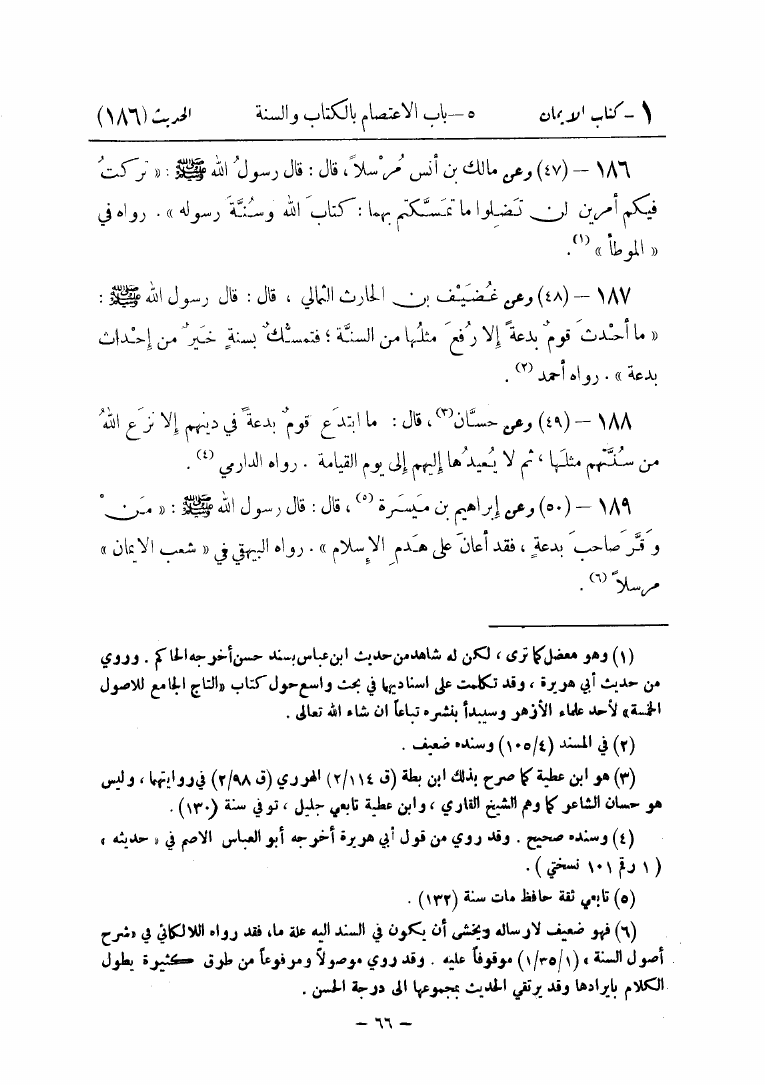 ١ - كتاب الايمان ٥ - باب الاعتصام بالكتاب والسنة الحديث (١٨٦)
١٨٦ - (٤٧) وعن مالك بن أنس مُرْسلاً، قال: قال رسولُ الله ﷺ: « تركتُ
فيكم أمرين لن تَضِلوا ما تمسَّكتم بهما: كتابَ الله وسُنَّةَ رسوله ». رواه في
« الموطأ » (١).
١٨٧ - (٤٨) وعن غُضَيْف بن الحارث الثمالي، قال: قال رسول الله ﷺ:
« ما أحْدثَ قومٌ بدعةً إلا رُفعَ مثلُها من السنَّة؛ فتمسُّكٌ بسنةٍ خَيرٌ من إحْداث
بدعة ». رواه أحمد (٢).
١٨٨ - (٤٩) وعن حسَّان(٣)، قال: ما ابتدَع قومٌ بدعةً في دينهم إلا نزَع اللهُ
من سُنَّتهم مثلَها، ثم لا يُعيدُها إليهم إلى يوم القيامة. رواه الدارمي (٤).
١٨٩ - (٥٠) وعن إبراهيم بن مَيسَرة (٥)، قال: قال رسول الله ﷺ: « مَنْ
وَقَّرَ صاحبَ بدعةٍ، فقد أعانَ على هَدمِ الإسلام ». رواه البيهقي في « شعب الايمان »
مرسلاً (٦).
(١) وهو معضل كما ترى، لكن له شاهد من حديث ابن عباس بسند حسن أخرجه الحاكم. وروي
من حديث أبي هريرة، وقد تكلمت على اسناديهما في بحث واسع حول كتاب «التاج الجامع للاصول
الخمسة» لأحد علماء الأزهر وسيبدأ بنشره تباعاً ان شاء الله تعالى.
(٢) في المسند (١٠٥/٤) وسنده ضعيف.
(٣) هو ابن عطية كما صرح بذلك ابن بطة (ق ٢/١١٤) الهروري (ق ٢/٩٨) في روايتهما، وليس
هو حسان الشاعر كما وهم الشيخ القاري، وابن عطية تابعي جليل، توفي سنة (١٣٠).
(٤) وسنده صحيح. وقد روي من قول أبي هريرة أخرجه أبو العباس الاصم في « حديثه »
(١ رقم ١٠١ نسختي).
(٥) تابعي ثقة حافظ مات سنة (١٣٢).
(٦) فهو ضعيف لارساله ويخشى أن يكون في السند اليه علة ما، فقد رواه اللالكائي في «شرح
أصول السنة» (١/٣٥/١) موقوفاً عليه. وقد روي موصولاً ومرفوعاً من طرق كثيرة يطول
الكلام بايرادها وقد يرتقي الحديث بمجموعها الى درجة الحسن.
- ٦٦ -